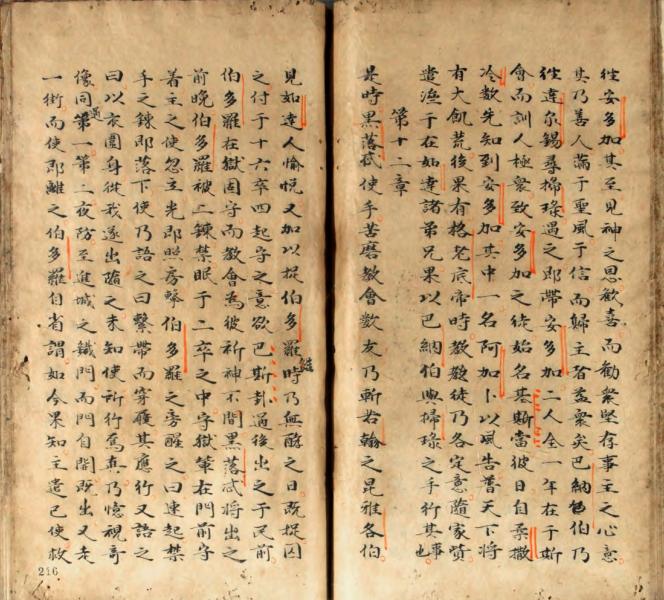 徃安多加其至見神之恩歡喜而勸衆堅存事主之心意
其乃善人滿于聖風于信而歸主者益衆矣巴納伯乃
徃達尔錫尋掃琭遇之即帶安多加二人全一年在于斯
會而訓人極衆致安多加之徒始名基斯當彼日自柔撒
冷数先知到安多加其中一名阿加卜以風告普天下將
有大飢荒後果有格老底帝時教徒乃各定意隨家貲
遣濟于在如達諸弟兄果以巴納伯與掃琭之手行其事也
第十二章
是時黑落忒使手苦磨教會数友乃斬若翰之昆雅各伯
見如達人愉悅又加以捉伯多羅時乃無酵之日既捉囚
之付于十六卒四起守之意欲巴斯卦過後出之于民前
伯多羅在獄固守而教會為彼祈神不間黑落忒將出之
前晚伯多羅被二鍊禁眠于二卒之中守獄輩在門前守
着主之使忽立光即照房擊伯多羅之旁醒之曰速起禁
手之鍊即落下使乃語之曰繫帶而穿履其應行又語之
曰以衣圍身從我遂出隨之未知使所行爲真乃憶視奇
像同過第一第二夜防至進城之鐵門而門自開既出又走
一街而使即離之伯多羅自省謂如今果知主遣已使救
216